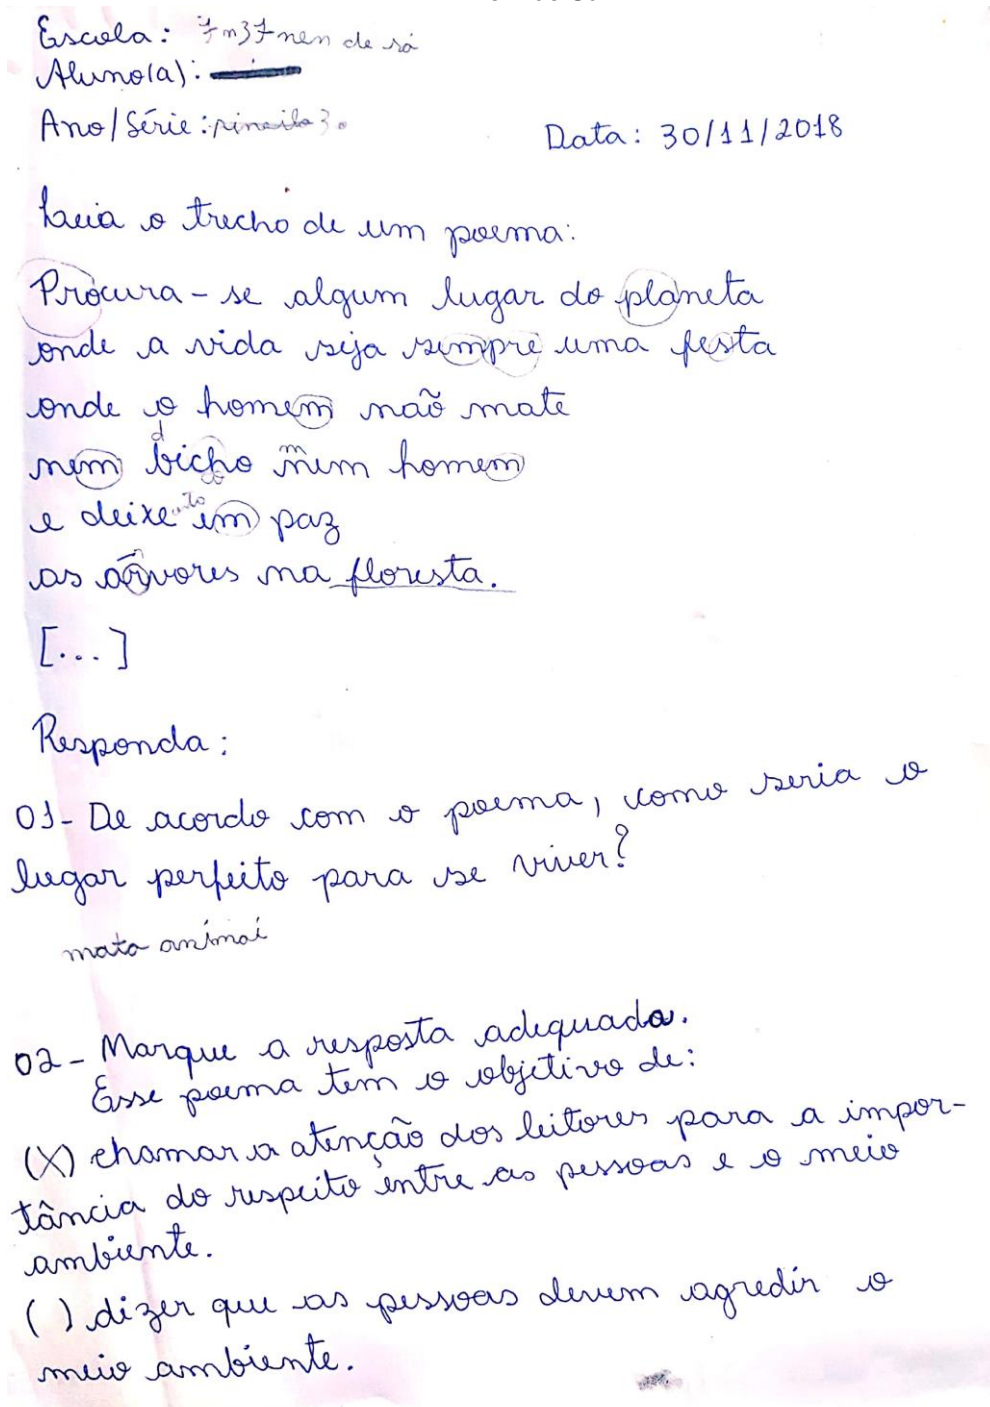 Escola: 7n37nen de sá
Aluno(a):
Ano/Série:
Data: 30/11/2018
Leia o trecho de um poema:
Procura-se algum lugar do planeta
onde a vida seja sempre uma festa
onde o homem não mate
nem bicho nem homem
e deixe em paz
as árvores na floresta.
[...]
Responda:
01- De acordo com o poema, como seria o
lugar perfeito para se viver?
mata animai
02- Marque a resposta adequada.
Esse poema tem o objetivo de:
(X) chamar a atenção dos leitores para a impor-
tância do respeito entre as pessoas e o meio
ambiente.
( ) dizer que as pessoas devem agredir o
meio ambiente.